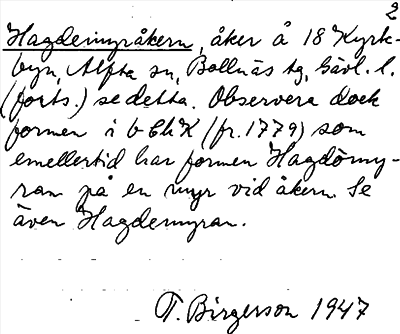 2
Hagdermyråkern, åker å 18 Kyrk-
byn, Alfta sn, Bollnäs tg, Gävl. l.
(forts.) se detta. Observera dock
formen i b Ek K (fr. 1779) som
emellertid har formen Hagdömy-
ran på en myr vid åkern. Se
även Hagdermyran.
T. Birgerson 1947